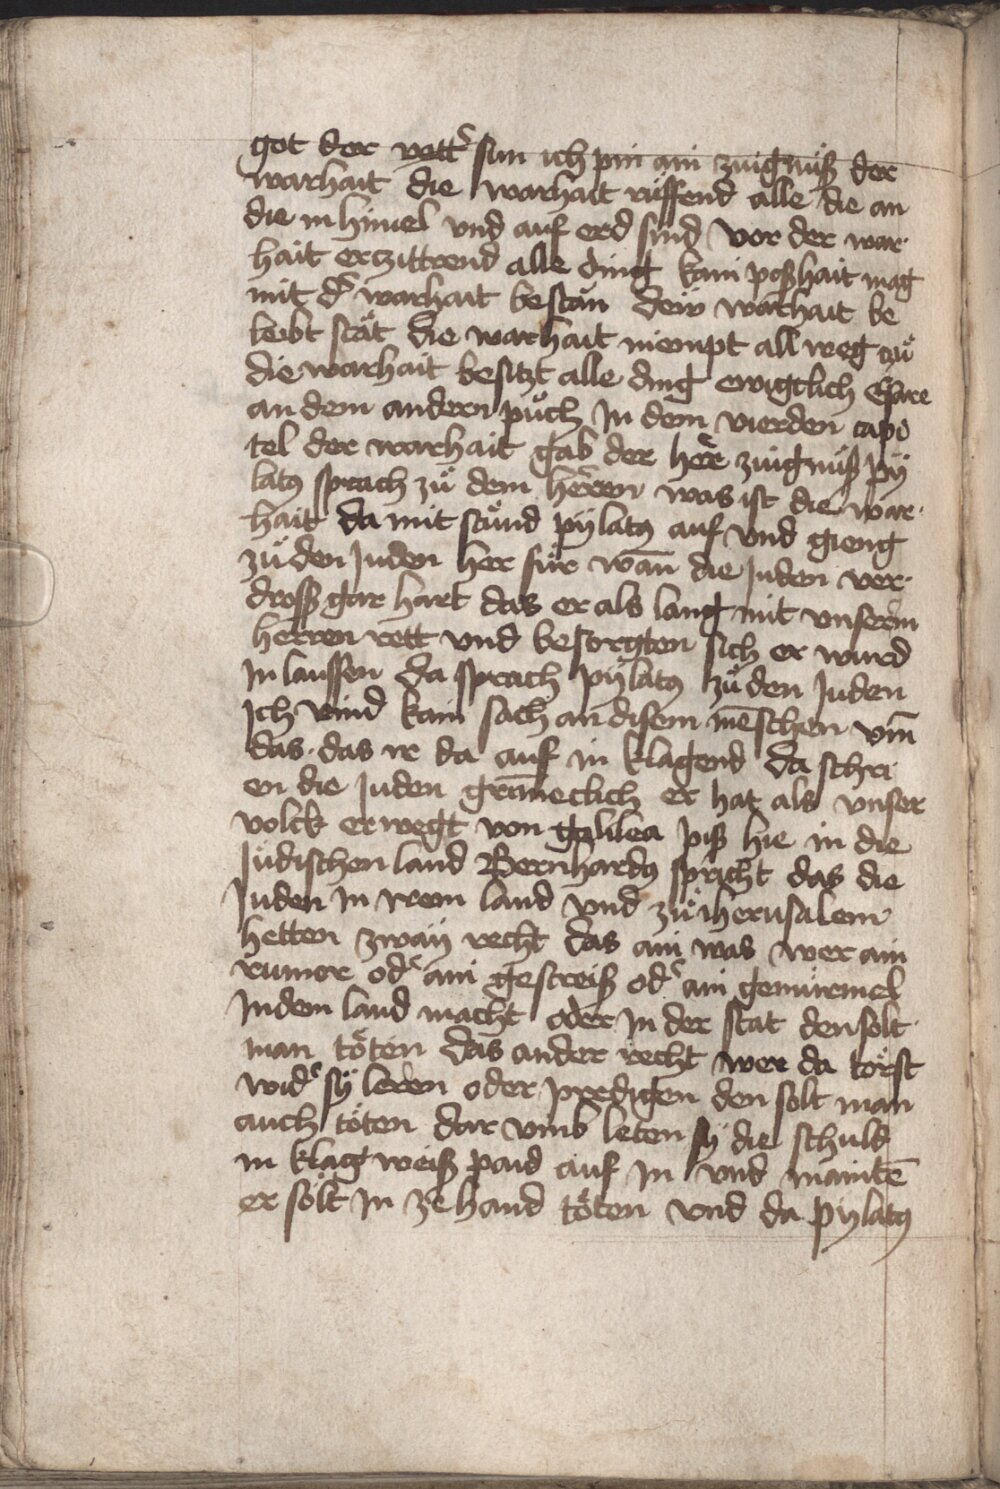 got der vatt sun ich pin ain zuignüß der
warhait die warhait rüffend alle die an
die in himel vnd auf erd sind vor der war
hait erczittrend alle ding kain poßhait mag
mit d warhait bestän dein warhait be
leibt stät die warhait niempt all weg zů
die warhait besitzt alle ding ewigtlich Esare
an dem andern půch in dem vierden capi
tel der warhait gab der her zuignüß py
latꝫ sprach zů dem herren was ist die war
hait da mit stůnd pÿlatꝫ auf vnd gieng
zů den Juden her für wan̄ die Juden ver
droß gar hart das er als lang mit vnserm
herren rett vnd besorgten sich er wurd
In laussen da sprach pÿlatꝫ zů den Juden
Ich vind kain sach an disem mēschen vm̄
das das ir da auf in klagend da schri
en die Juden grim̄eclich er hat als vnser
volck erwegt von galilea piß hie in die
Jüdischen land Bernhardꝫ spricht das die
Juden in irem land vnd zů iherusalem
hetten zwaÿ recht das ain was wer ain
rumor od ain gestreiß od ain gemürmel
In dem land macht oder in der stat den solt
man töten das ander recht wer da törst
wid sÿ leren oder predigen den solt man
auch töten dar vmb leten sÿ die schuld
in klag weiß paid auf In vnd maintē
er sölt In ze hand töten vnd da pÿlatꝫ